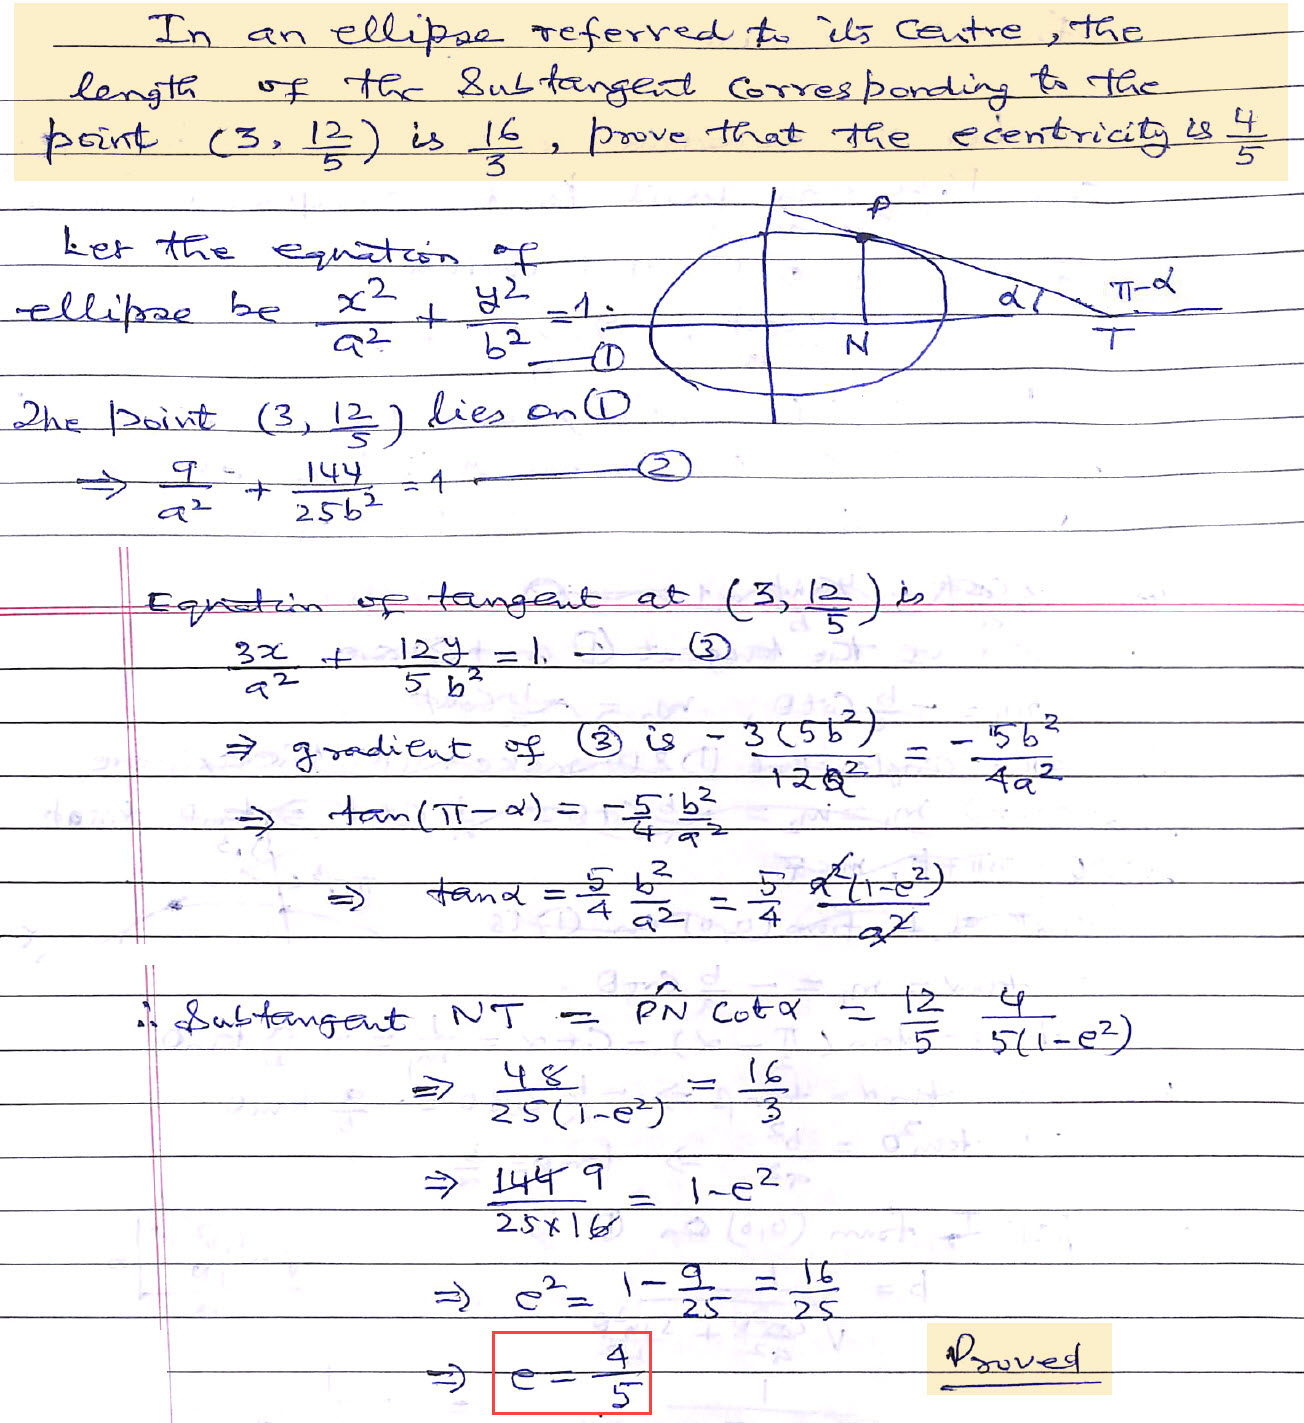 In an ellipse referred to its centre, the
length of the Subtangent corresponding to the
point (3, 12/5) is 16/3, prove that the ecentricity is 4/5
Let the equation of
ellipse be x²/a² + y²/b² = 1. — ①
P
α
π-α
N
T
The point (3, 12/5) lies on ①
⇒ 9/a² + 144/25b² = 1 — ②
Equation of tangent at (3, 12/5) is
3x/a² + 12y/5b² = 1. — ③
⇒ gradient of ③ is - 3(5b²)/12a² = - 5b²/4a²
⇒ tan(π-α) = -5/4 b²/a²
⇒ tanα = 5/4 b²/a² = 5/4 a²(1-e²)/a²
∴ Subtangent NT = PN cotα = 12/5 4/5(1-e²)
⇒ 48/25(1-e²) = 16/3
⇒ 144 9/25×16 = 1-e²
⇒ e² = 1 - 9/25 = 16/25
⇒ e = 4/5
Proved